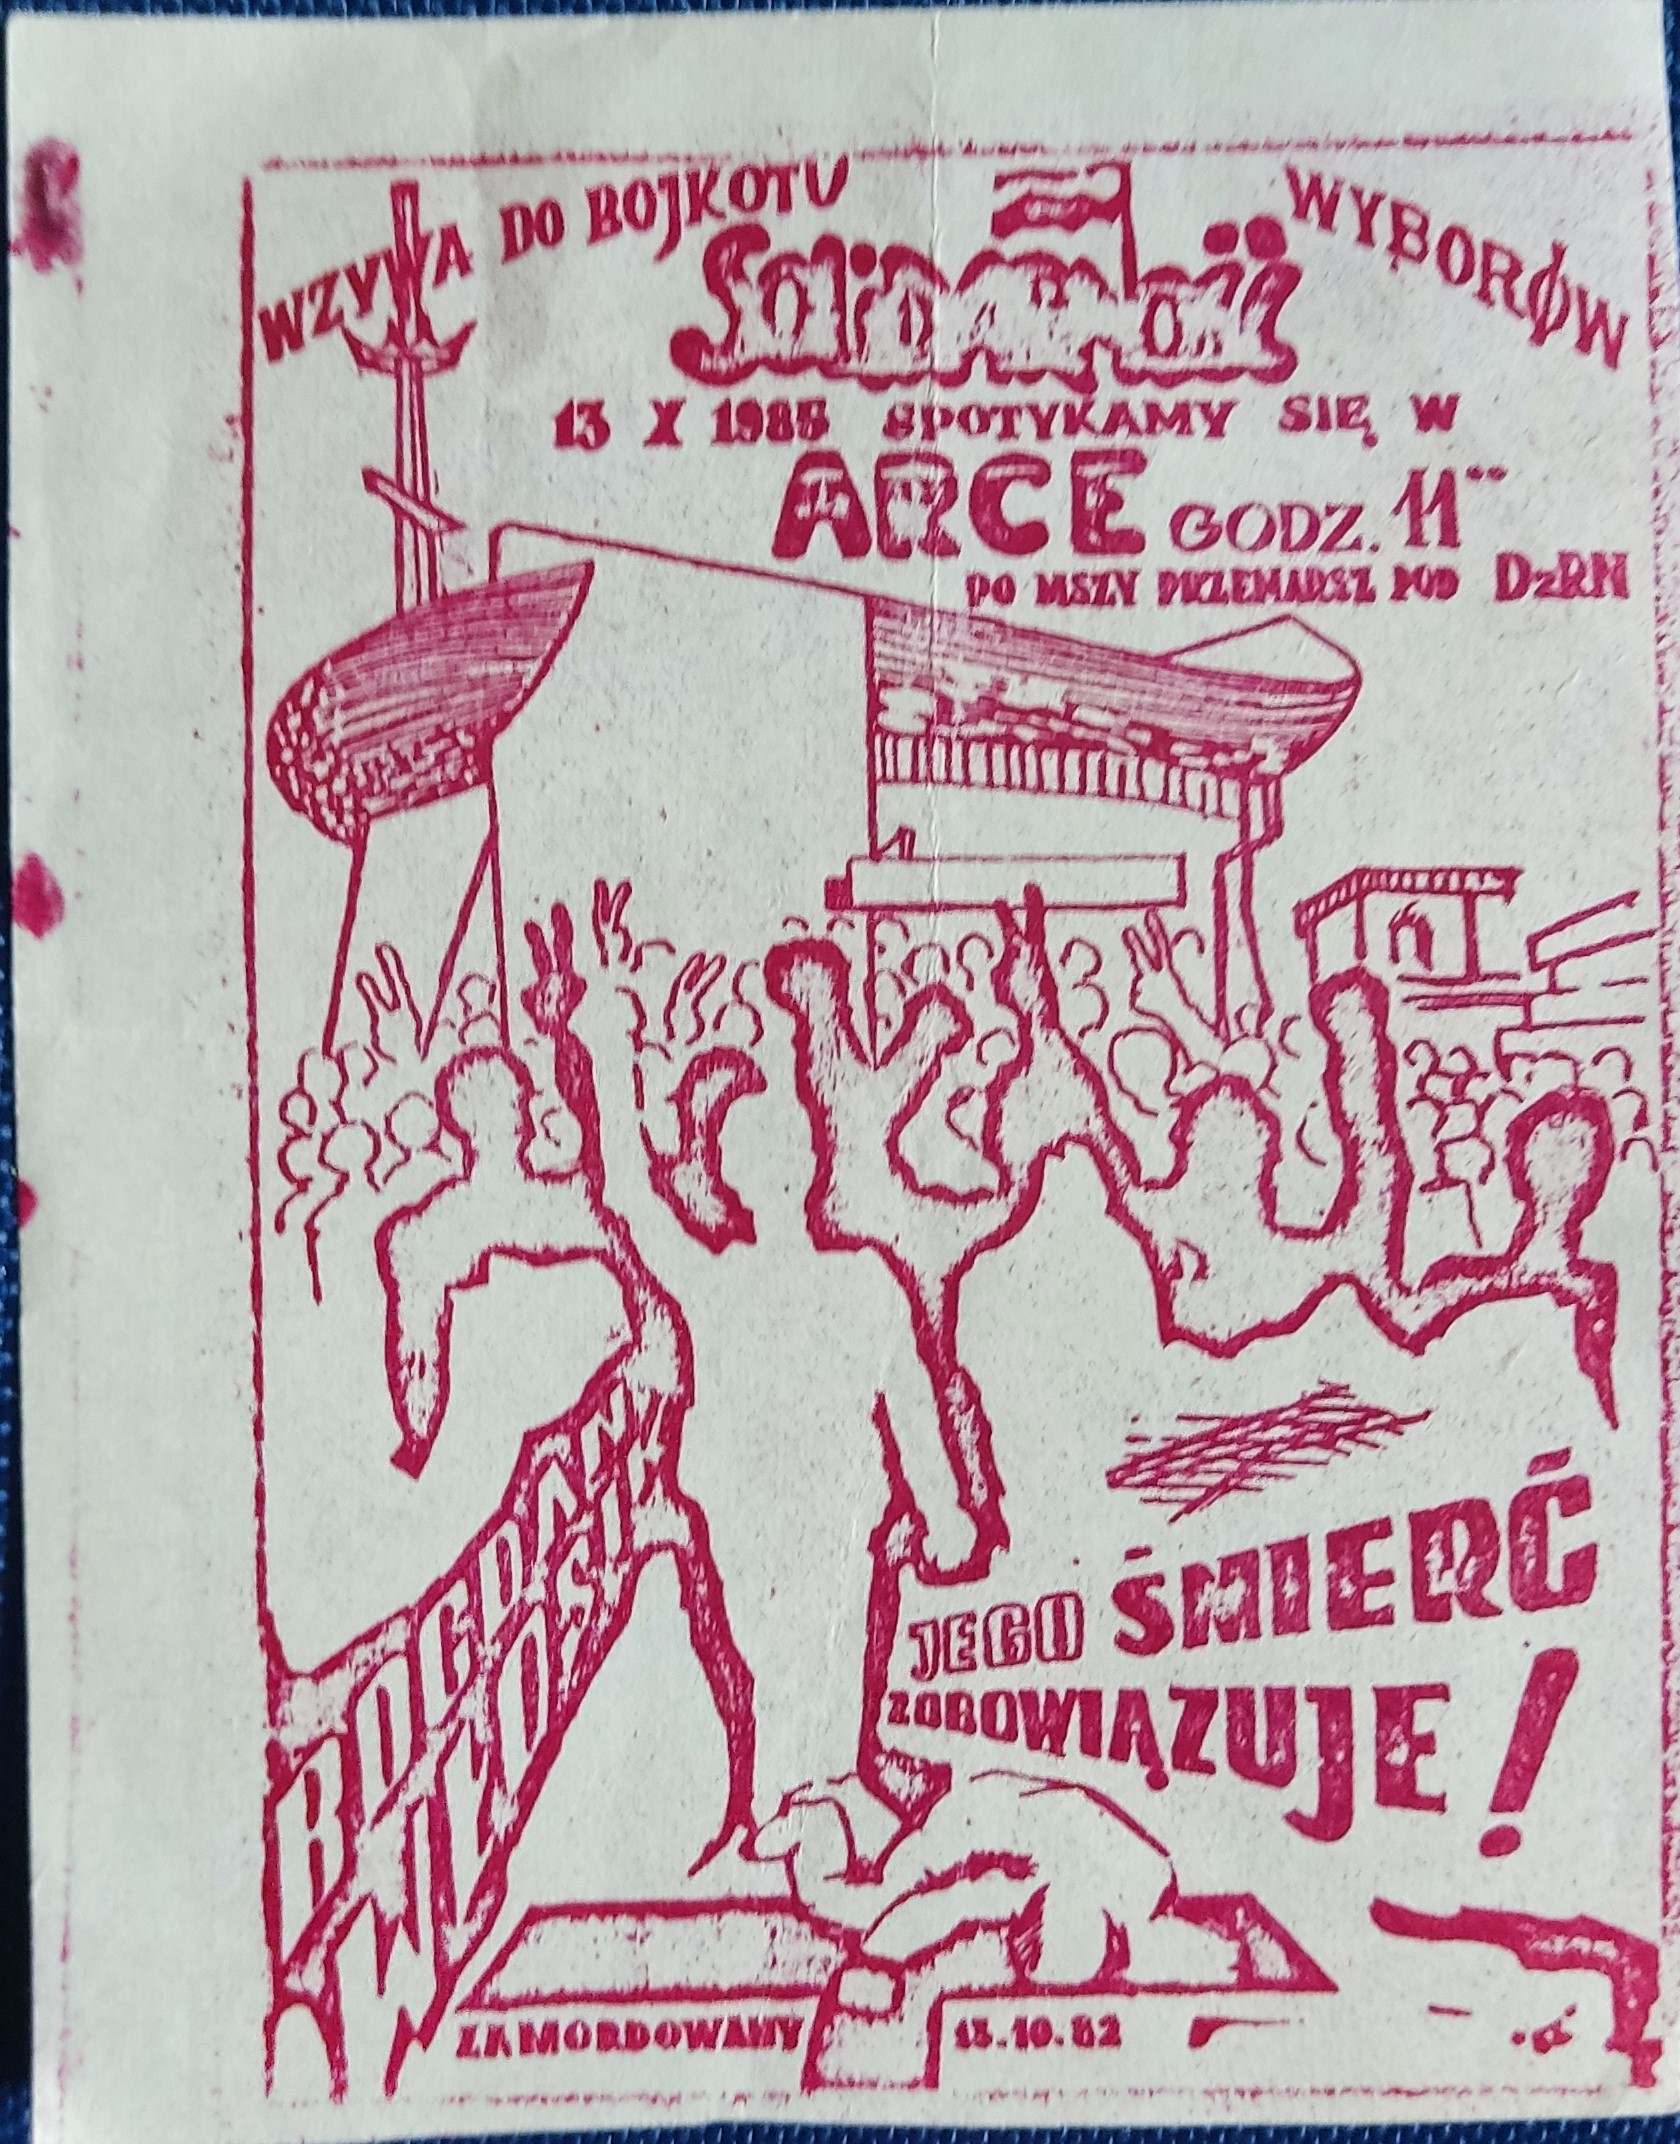 WZYWA DO BOJKOTU WYBORÓW
Solidarność
13 X 1985 SPOTYKAMY SIĘ W
ARCE GODZ. 11⁰⁰
PO MSZY PRZEMARSZ POD DzRN
BOGDAN
WŁOSIK
JEGO ŚMIERĆ
ZOBOWIĄZUJE!
ZAMORDOWANY 13.10.82